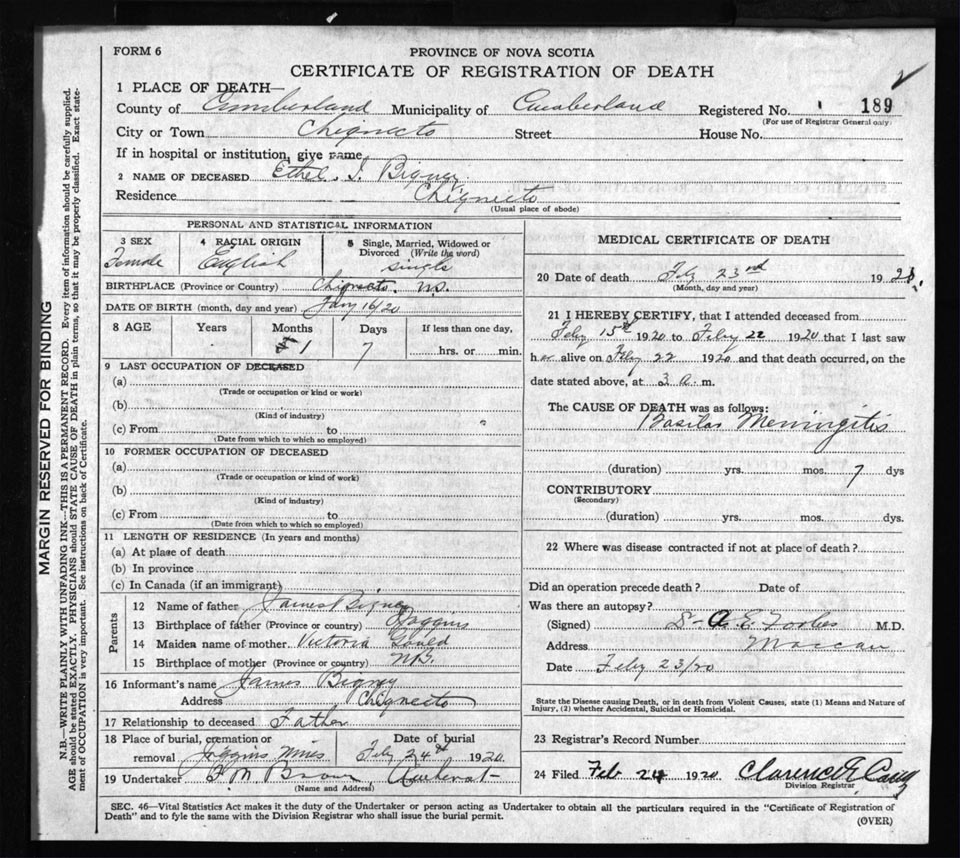 FORM 6
PROVINCE OF NOVA SCOTIA
CERTIFICATE OF REGISTRATION OF DEATH
1 PLACE OF DEATH—
County of Cumberland Municipality of Cumberland Registered No. 189
(For use of Registrar General only)
City or Town Chignecto Street House No.
If in hospital or institution, give name
2 NAME OF DECEASED Ethel I. Bigney
Residence Chignecto
(Usual place of abode)
MARGIN RESERVED FOR BINDING
N.B.—WRITE PLAINLY WITH UNFADING INK—THIS IS A PERMANENT RECORD. Every item of information should be carefully supplied.
AGE should be stated EXACTLY. PHYSICIANS should STATE CAUSE OF DEATH in plain terms, so that it may be properly classified. Exact state-
ment of OCCUPATION is very important. See instructions on back of Certificate.
PERSONAL AND STATISTICAL INFORMATION
3 SEX 4 RACIAL ORIGIN 5 Single, Married, Widowed or
Divorced (Write the word)
Female English single
BIRTHPLACE (Province or Country) Chignecto. N.S.
DATE OF BIRTH (month, day and year) Jany 16/20
8 AGE Years Months Days If less than one day,
1 7 hrs. or min.
9 LAST OCCUPATION OF DECEASED
(a)
(Trade or occupation or kind or work)
(b)
(Kind of industry)
(c) From to
(Date from which to which so employed)
10 FORMER OCCUPATION OF DECEASED
(a)
(Trade or occupation or kind of work)
(b)
(Kind of industry)
(c) From to
(Date from which to which so employed)
11 LENGTH OF RESIDENCE (In years and months)
(a) At place of death
(b) In province
(c) In Canada (if an immigrant)
Parents
12 Name of father James Bigney
13 Birthplace of father (Province or country) Joggins
14 Maiden name of mother Victoria Gould
15 Birthplace of mother (Province or country) N.B.
16 Informant's name James Bigney
Address Chignecto
17 Relationship to deceased Father
18 Place of burial, cremation or Date of burial
removal Joggins Mines Feby 24th 1920
19 Undertaker Amherst
(Name and Address)
MEDICAL CERTIFICATE OF DEATH
20 Date of death Feby 23rd 1920.
(Month, day and year)
21 I HEREBY CERTIFY, that I attended deceased from
Feby 15th 1920 to Feby 22 1920 that I last saw
her alive on Feby 22 1920 and that death occurred, on the
date stated above, at 3 a. m.
The CAUSE OF DEATH was as follows:
Basilar Meningitis
(duration) yrs. mos. 7 dys
CONTRIBUTORY
(Secondary)
(duration) yrs. mos. dys.
22 Where was disease contracted if not at place of death?
Did an operation precede death? Date of
Was there an autopsy?
(Signed) A E Forbes M.D.
Address Maccan
Date Feby 23/20
State the Disease causing Death, or in death from Violent Causes, state (1) Means and Nature of
Injury, (2) whether Accidental, Suicidal or Homicidal.
23 Registrar's Record Number
24 Filed Feb 24 1920. Clarence E
Division Registrar
SEC. 46—Vital Statistics Act makes it the duty of the Undertaker or person acting as Undertaker to obtain all the particulars required in the "Certificate of Registration of
Death" and to fyle the same with the Division Registrar who shall issue the burial permit.
(OVER)